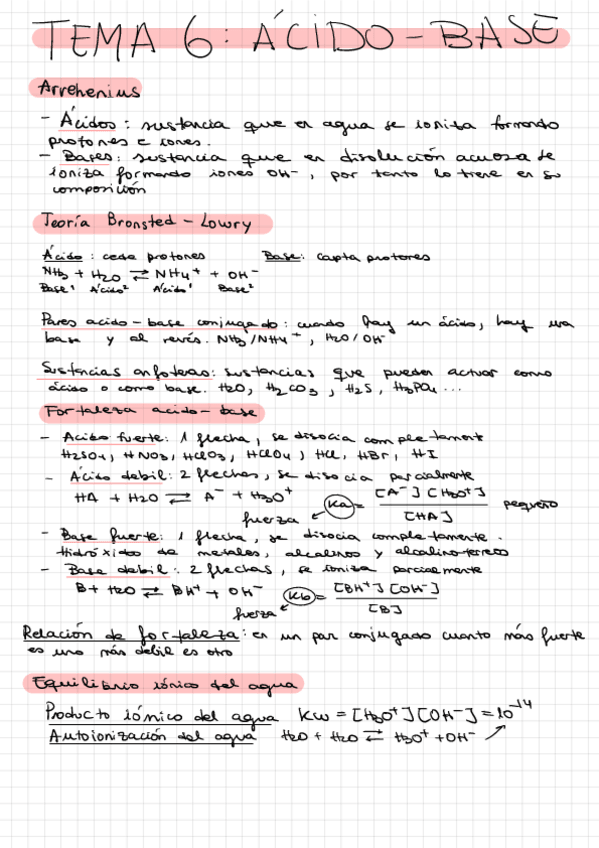 TEMA 6: ÁCIDO-BASE
Arrehenius
- Ácidos: sustancia que en agua se ioniza formando
protones e iones.
- Bases: sustancia que en disolución acuosa se
ioniza formando iones OH⁻, por tanto lo tiene en su
composición
Teoría Bronsted-Lowry
Ácido: cede protones Base: capta protones
NH₃ + H₂O ⇄ NH₄⁺ + OH⁻
Base¹ Ácido² Ácido¹ Base²
Pares acido-base conjugado: cuando hay un ácido, hay una
base y al revés. NH₃/NH₄⁺, H₂O/OH⁻
Sustancias anfoteras: sustancias que pueden actuar como
ácido o como base. H₂O, H₂CO₃, H₂S, H₃PO₄...
Fortaleza acido-base
- Acido fuerte: 1 flecha, se disocia completament
H₂SO₄, HNO₃, HClO₃, HClO₄, HCl, HBr, HI
- Ácido debil: 2 flechas, se disocia parcialmente
HA + H₂O ⇄ A⁻ + H₃O⁺ Ka = [A⁻][H₃O⁺] / [HA] pequeño
fuerza
- Base fuerte: 1 flecha, se disocia completamente.
Hidróxido de metales, alcalinos y alcalino-terreo
- Base debil: 2 flechas, se ioniza parcialmente
B + H₂O ⇄ BH⁺ + OH⁻ Kb = [BH⁺][OH⁻] / [B]
fuerza
Relación de fortaleza: en un par conjugado cuanto más fuerte
es uno más debil es otro
Equilibrio iónico del agua
Producto iónico del agua Kw = [H₃O⁺][OH⁻] = 10⁻¹⁴
Autoionización del agua H₂O + H₂O ⇄ H₃O⁺ + OH⁻